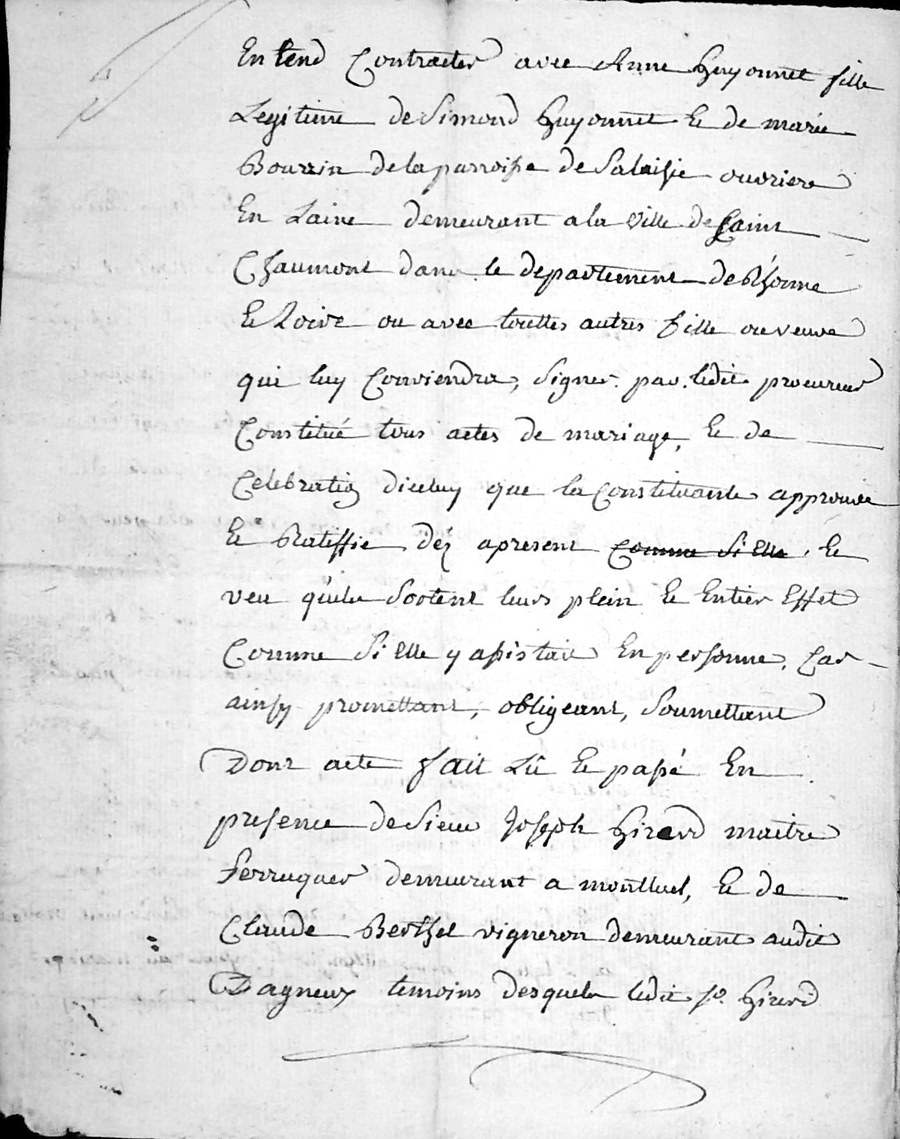 Entend Contracter avec Anne Guyonnet fille
Legitime de Simond Guyonnet & de marie
Bourrin de la parroisse de Salaisie ouvriere
En Laine demeurant a la ville de Saint
Chaumont dans le departement de Rhonne
& Loire ou avec touttes autres fille ou veuve
qui luy Conviendra, Signer par ledit procureur
Constitué tous actes de mariage, & de
Celebration diceluy que la Constituante approuve
& Ratiffie déz apresent Comme Si Elle, &
veu quils Sortent leurs plein & Entier Effet
Comme Si Elle y assistait En personne, Car
ainsy promettant, obligeant, Soumettant
Dont acte fait Lû & passé En
presence de Sieur Joseph Girard maitre
Perruquier demeurant a montluel, & de
Claude Berthet vigneron demeurant audit
Dagneux temoins desquels ledit Sr. Girard